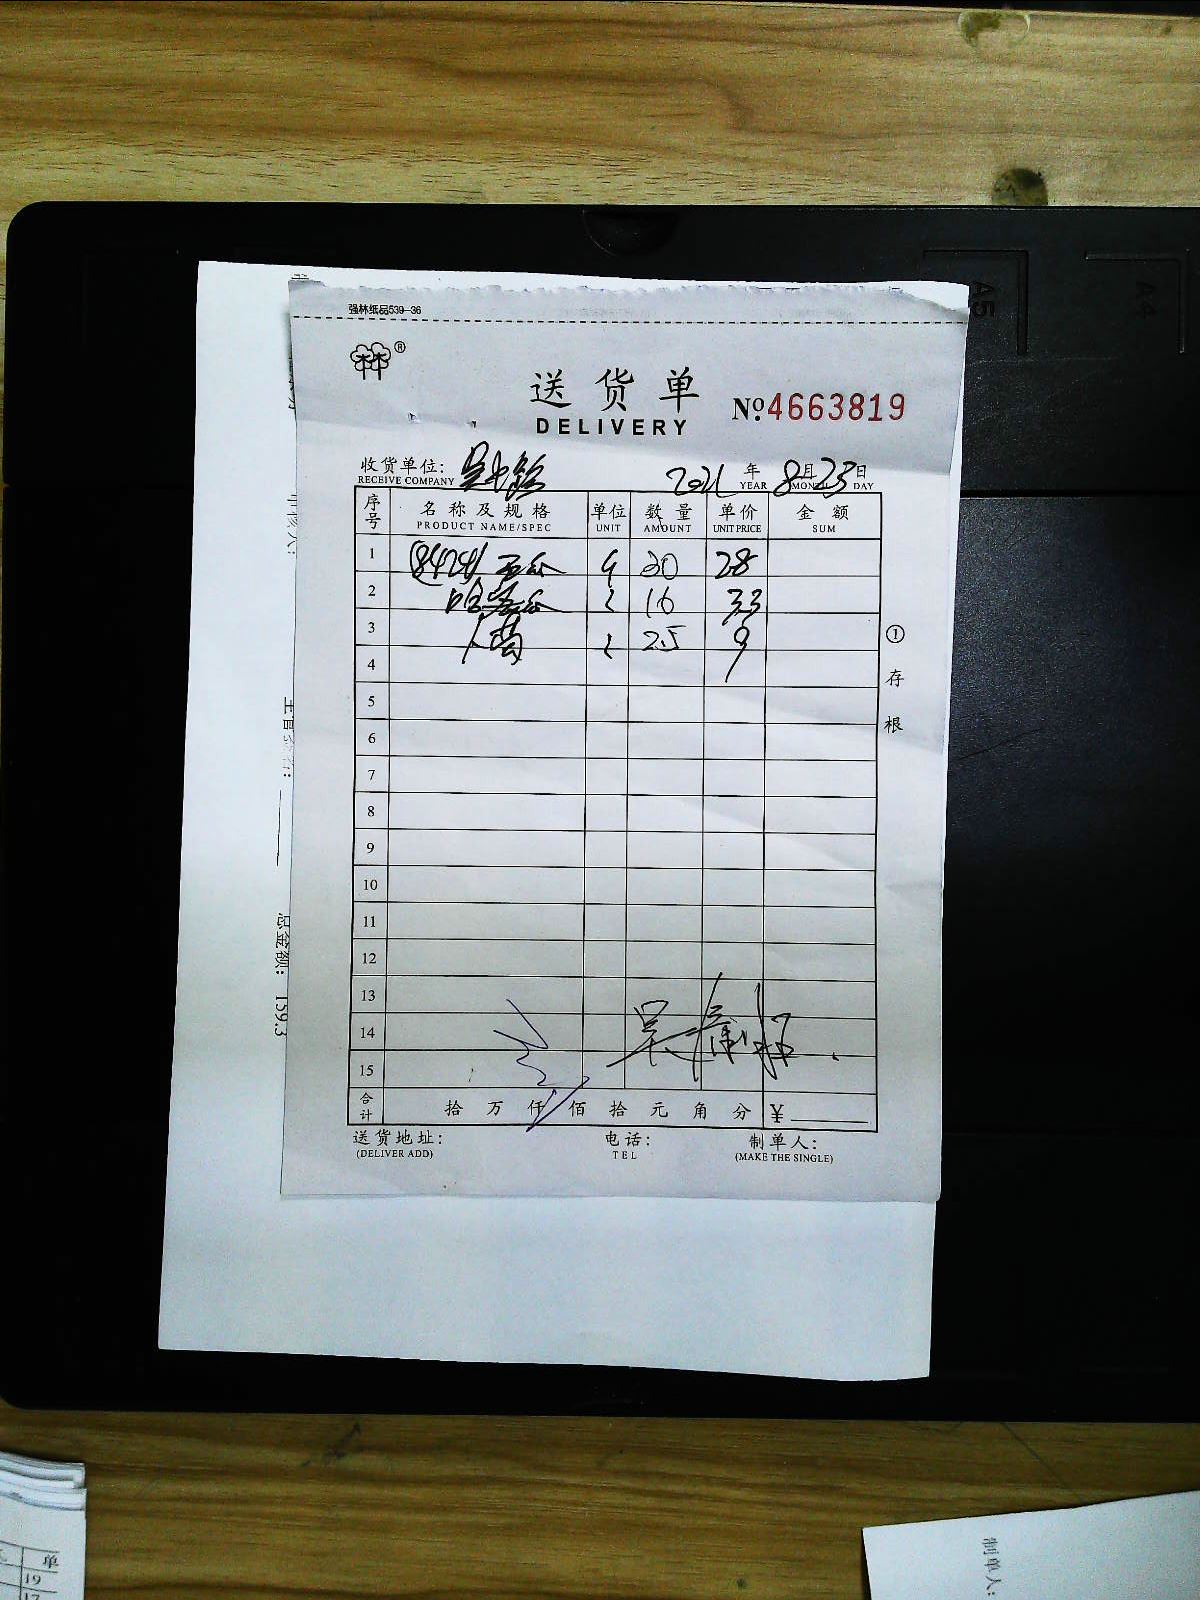 强林纸品539-36
®
送货单
DELIVERY
№ 4663819
收货单位:
RECEIVE COMPANY
2021 年 8 月 23 日
YEAR MONTH DAY
序号 名称及规格 单位 数量 单价 金额
PRODUCT NAME/SPEC UNIT AMOUNT UNIT PRICE SUM
1 8424 西瓜 20 28
2 哈密瓜 16 33
3 25 9
4
5
6
7
8
9
10
11
12
13
14
15
合计 拾 万 仟 佰 拾 元 角 分 ¥
送货地址: 电话: 制单人:
(DELIVER ADD) TEL (MAKE THE SINGLE)
① 存根
总金额: 159.3
A5
A4
制单人:
单
19
17